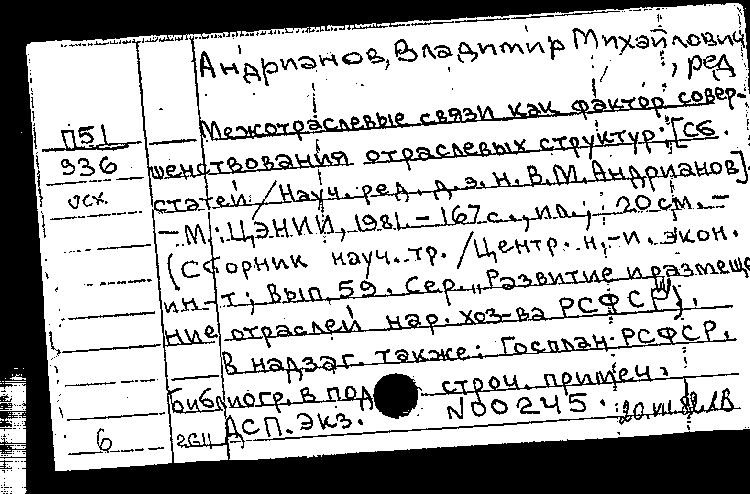 Андрианов, Владимир Михайлович
, ред
П51
936
Межотраслевые связи как фактор совер-
шенствования отраслевых структур: [Сб.
статей / Науч. ред. д. э. н. В.М. Андрианов].
— М.: ЦЭНИИ, 1981. — 167 с., ил.; 20 см. —
(Сборник науч. тр. / Центр. н.-и. экон.
ин-т; Вып. 59. Сер. „Развитие и размеще
ние отраслей нар. хоз-ва РСФСР").
В надзаг. также: Госплан РСФСР.
Библиогр. в под строч. примеч.
ДСП. Экз. N00245.
6